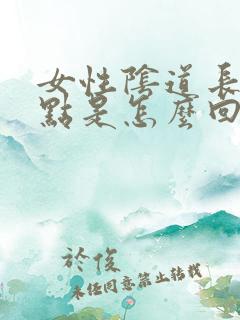 女性陰道長
點是怎麼回
於俊
未經同意禁止轉載